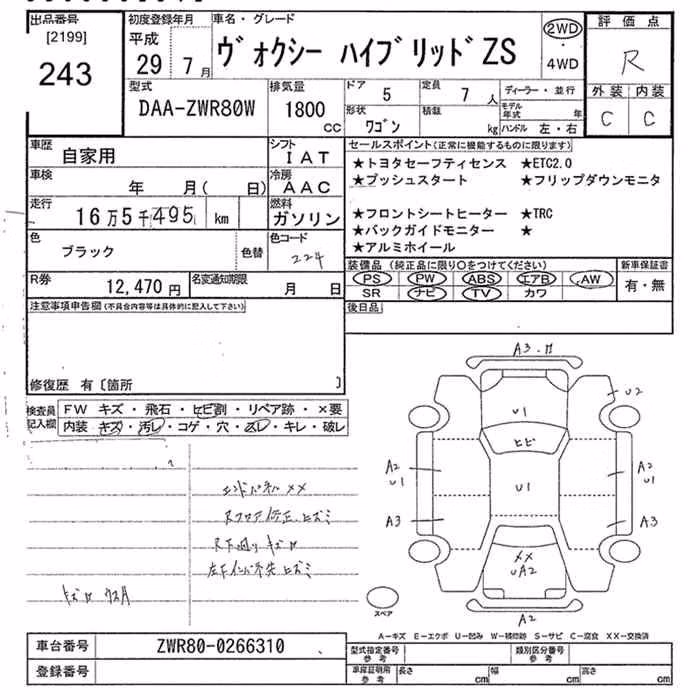 出品番号
[2199]
243
初度登録年月
平成
29年7月
車名・グレード
ヴォクシー ハイブリッドZS
2WD
・
4WD
評価点
R
外装 内装
C C
型式
DAA-ZWR80W
排気量
1800
CC
ドア 5
定員 7人
ディーラー・並行
形状 ワゴン
積載 kg
モデル年式 年
ハンドル 左・右
車歴
自家用
シフト
IAT
車検
年 月( 日)
冷房
AAC
走行
16万5千495 km
燃料
ガソリン
色
ブラック
色替
色コード
224
R券
12,470円
名変通知期限
月 日
セールスポイント(正常に機能するものに限ります)
★トヨタセーフティセンス ★ETC2.0
★プッシュスタート ★フリップダウンモニタ
★フロントシートヒーター ★TRC
★バックガイドモニター ★
★アルミホイール
装備品(純正品に限り○をつけてください)
新車保証書
PS PW ABS エアB AW
SR ナビ TV カワ
有・無
後日品
注意事項申告欄(不具合内容等は具体的に記入して下さい)
修復歴 有〔箇所 〕
検査員
記入欄
FW キズ・飛石・ヒビ割・リペア跡・×要
内装 キズ・汚レ・コゲ・穴・スレ・キレ・破レ
エンドパネル XX
Rフロア修正 ヒズミ
R下廻り キズ
ヒズミ
A3
U2
U1
ヒビ
A2
U1
U1
A2
U1
A3
A3
XX
UA2
A2
スペア
A-キズ E-エクボ U-凹み W-補修跡 S-サビ C-腐食 XX-交換済
車台番号
ZWR80-0266310
登録番号
型式指定番号
参考
類別区分番号
参考
車庫証明用
参考
長さ cm
幅 cm
高さ cm